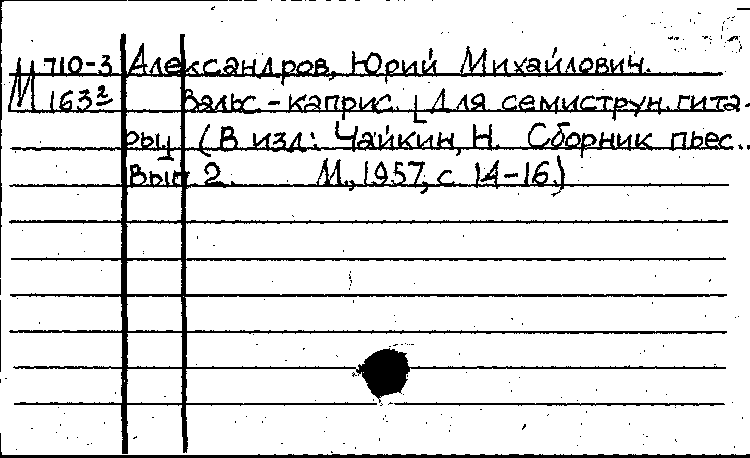 М 710-3 Александров, Юрий Михайлович.
М 163² Вальс-каприс. [Для семиструн. гита-
ры] (В изд: Чайкин, Н. Сборник пьес..
Вып 2. М., 1957, с. 14-16.)